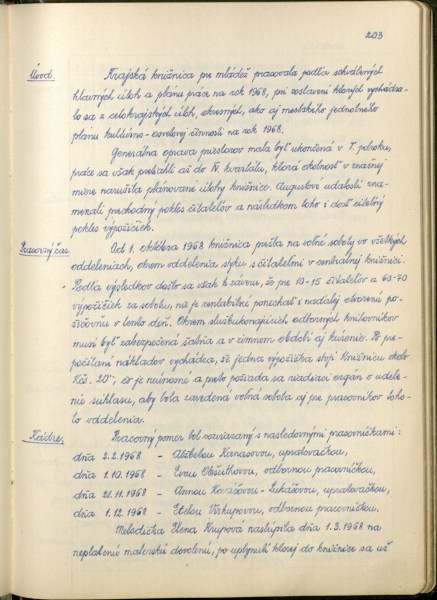 203
Úvod.
Krajská knižnica pre mládež pracovala podľa schválených
hlavných úloh a plánu práce na rok 1968, pri zostavení ktorých vychádza-
lo sa z celokrajských úloh, okresných, ako aj mestského jednotného
plánu kultúrno-osvetovej činnosti na rok 1968.
Generálna oprava priestorov mala byť ukončená v I. polroku,
práce sa však pretiahli až do IV. kvartálu, ktorá okolnosť v značnej
miere narušila plánované úlohy knižnice. Augustové udalosti zna-
menali prechodný pokles čitateľov a následkom toho i dosť citeľný
pokles výpožičiek.
Pracovný čas.
Od 1. októbra 1968 knižnica prešla na voľné soboty vo všetkých
oddeleniach, okrem oddelenia styku s čitateľmi v centrálnej knižnici.
Podľa výsledkov došlo sa však k záveru, že pre 10-15 čitateľov a 60-70
výpožičiek za sobotu, nie je rentabilné ponechať i naďalej otvorenú po-
žičovňu v tento deň. Okrem službukonajúcich odborných knihovníkov
musí byť zabezpečená šatňa a v zimnom období aj kúrenie. Po pre-
počítaní nákladov vychádza, že jedna výpožička stojí knižnicu okolo
Kčs. 20.-, čo je neúnosné a preto požiada sa nadriadený orgán o udele-
nie súhlasu, aby bola zavedená voľná sobota aj pre pracovníkov toho-
to oddelenia.
Kádre.
Pracovný pomer bol rozviazaný s nasledovnými pracovníčkami:
dňa 2.2.1968 - Alžbetou Kanasovou, upratovačkou,
dňa 1.10.1968 - Evou, odbornou pracovníčkou,
dňa 21.11.1968 - Annou - Lukášovou, upratovačkou,
dňa 1.12.1968 - Etelou, odbornou pracovníčkou.
Metodička Elena Krupová nastúpila dňa 1.3.1968 na
neplatenú materskú dovolenú, po uplynutí ktorej do knižnice sa už